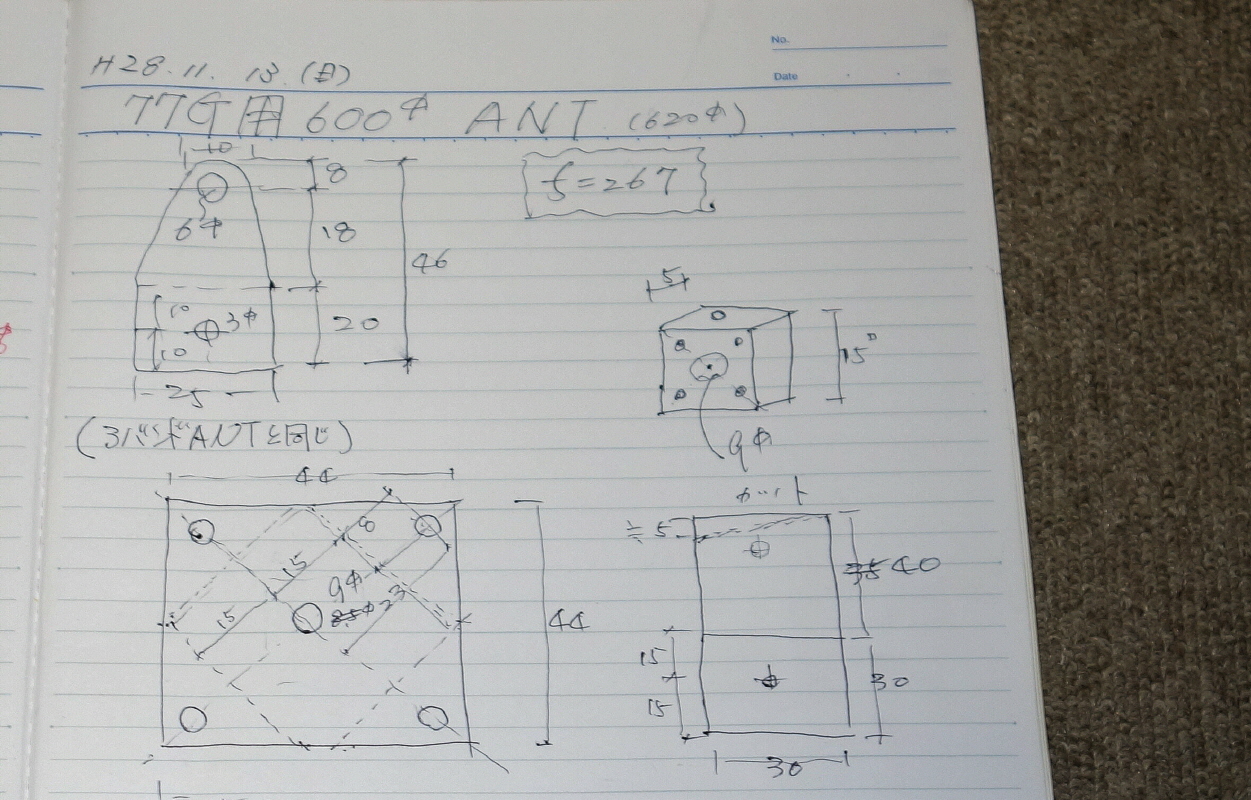 No.
Date
H28.11.13(日)
77G用 600φ ANT (620φ)
10
8
f=267
6φ
18
46
5
10
3φ
20
10
15□
25
9φ
(3バンドANTと同じ)
44
カット
≒5
8
35 40
15
9φ
8.5φ 23
15
44
15
30
15
30